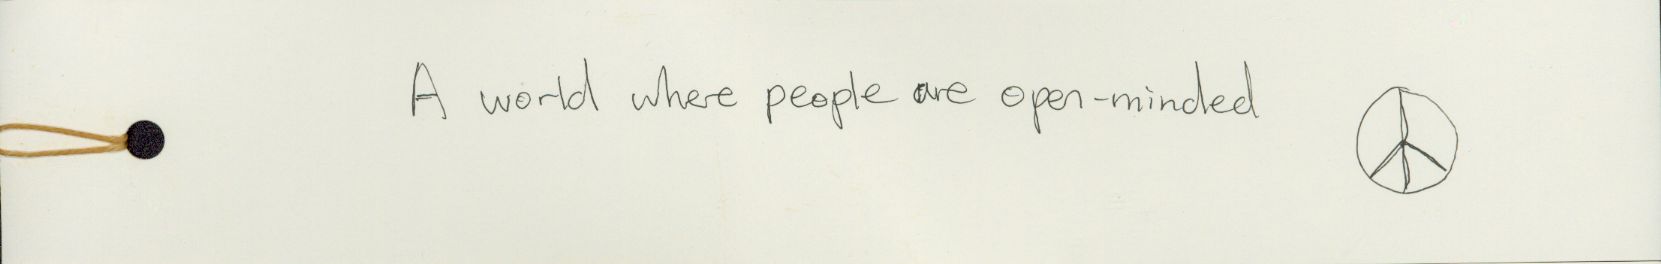 A world where people are open-minded